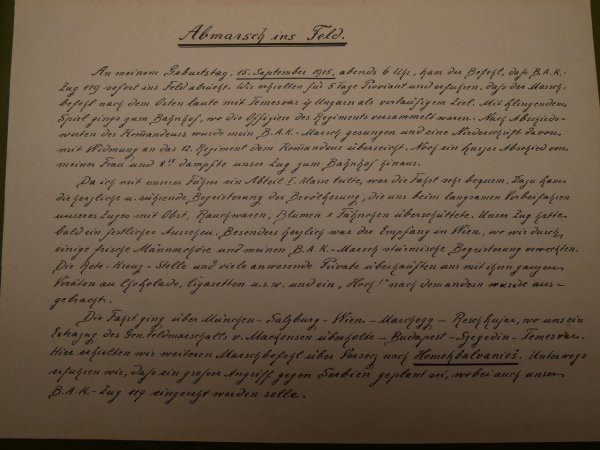 Abmarsch ins Feld.
An meinem Geburtstag, 15. September 1915, abends 6 Uhr, kam der Befehl, daß B.A.K.-
Zug 119 sofort ins Feld abrückt. Wir erhielten für 5 Tage Proviant und erfuhren, daß der Marsch-
befehl nach dem Osten laute mit Temesvar i/ Ungarn als vorläufigem Ziel. Mit klingendem
Spiel gings zum Bahnhof, wo die Offiziere des Regiments versammelt waren. Nach Abschieds-
worten des Komandeurs wurde mein B.A.K.-Marsch gesungen und eine Niederschrift davon
mit Widmung an das 12. Regiment dem Komandeur überreicht. Noch ein kurzer Abschied von
meiner Frau und 8¹⁵ dampfte unser Zug zum Bahnhof hinaus.
Da ich mit unserm Führer ein Abteil I. Klasse teilte, war die Fahrt sehr bequem. Dazu kam
die herzliche u. rührende Begeisterung der Bevölkerung, die uns beim langsamen Vorbeifahren
unseres Zuges mit Obst, Rauchwaren, Blumen & Fähnchen überschüttete. Unser Zug hatte
bald ein festliches Aussehen. Besonders herzlich war der Empfang in Wien, wo wir durch
einige frische Männerchöre und meinen B.A.K.-Marsch stürmische Begeisterung erweckten.
Die Rote-Kreuz-Stelle und viele anwesende Private überhäuften uns mit ihren ganzen
Vorräten an Chokolade, Cigaretten u.s.w. und ein „Hoch“ nach dem andern wurde aus-
gebracht.
Die Fahrt ging über München-Salzburg-Wien-Marchegg-, wo uns ein
Extrazug des Gen. Feldmarschalls v. Mackensen überholte-Budapest-Szegedin-Temesvar.
Hier erhielten wir weiteren Marschbefehl über nach Homokbalvanios. Unterwegs
erfuhren wir, daß ein großer Angriff gegen Serbien geplant sei, wobei auch unser
B.A.K.-Zug 119 eingesetzt werden solle.